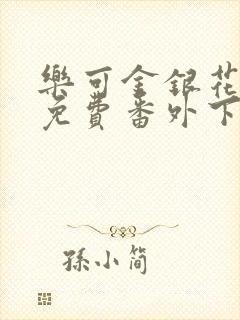 樂可金銀花
免費番外下
孫小簡